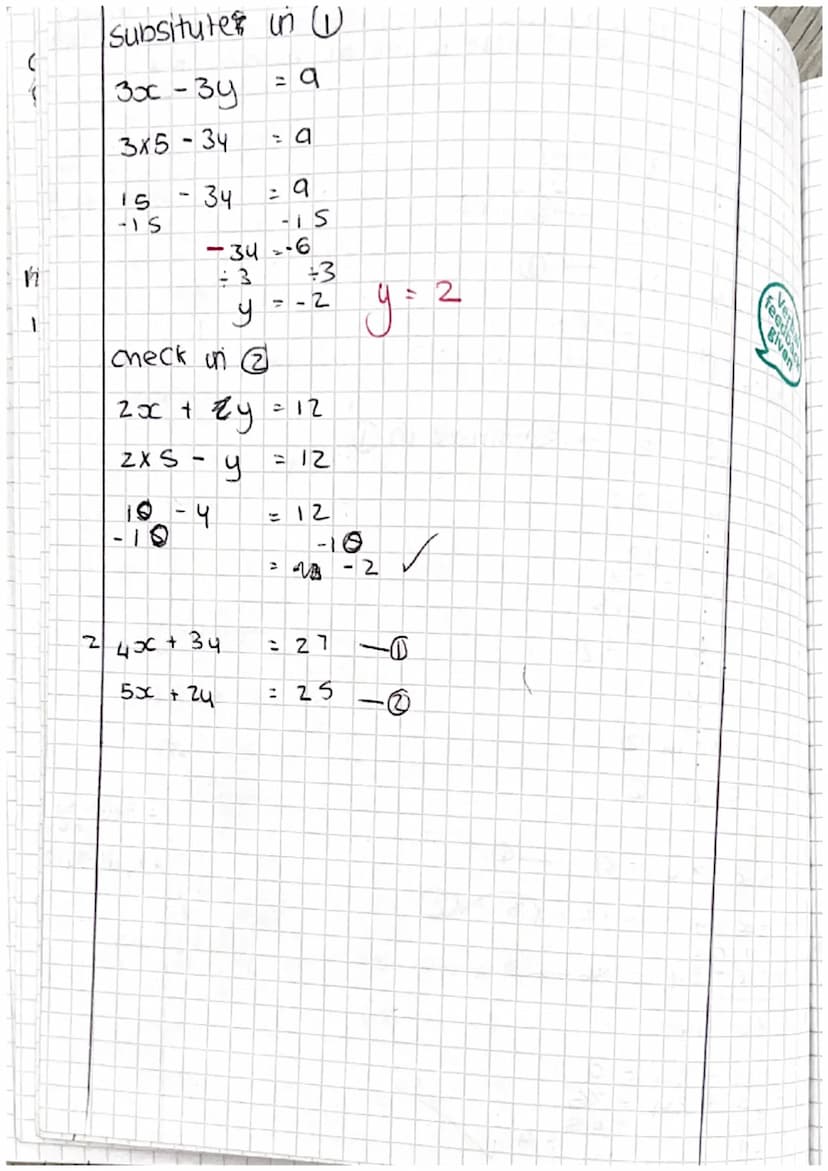 subsitutes in ①
3x - 3y = 9
3x5 - 3y = 9
15 - 3y = 9
-15 -15
- 3y = -6
÷3 ÷3
y = -2 y = 2
Verbal feedback given
check in ②
2x + 2y = 12
2x5 - y = 12
10 - y = 12
-10 -10
= -2 ✓
2 4x + 3y = 27 —①
5x + 2y = 25 —②